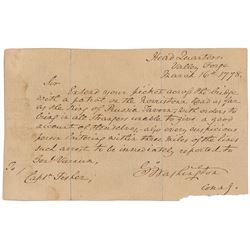 Head Quarters
Valley Forge
March 16th 1778.
Sir
Extend your picket across the bridge
with a patrol on the Norristown road as far
as the King of Prussia Tavern, with orders to
bring in all Strangers unable to give a good
account of themselves, any suspicious
person loitering within three miles of the lines
such arrest to be immediately reported to
Genl Varnum.
Go Washington
To
Capt. Fosher,
Comdg.